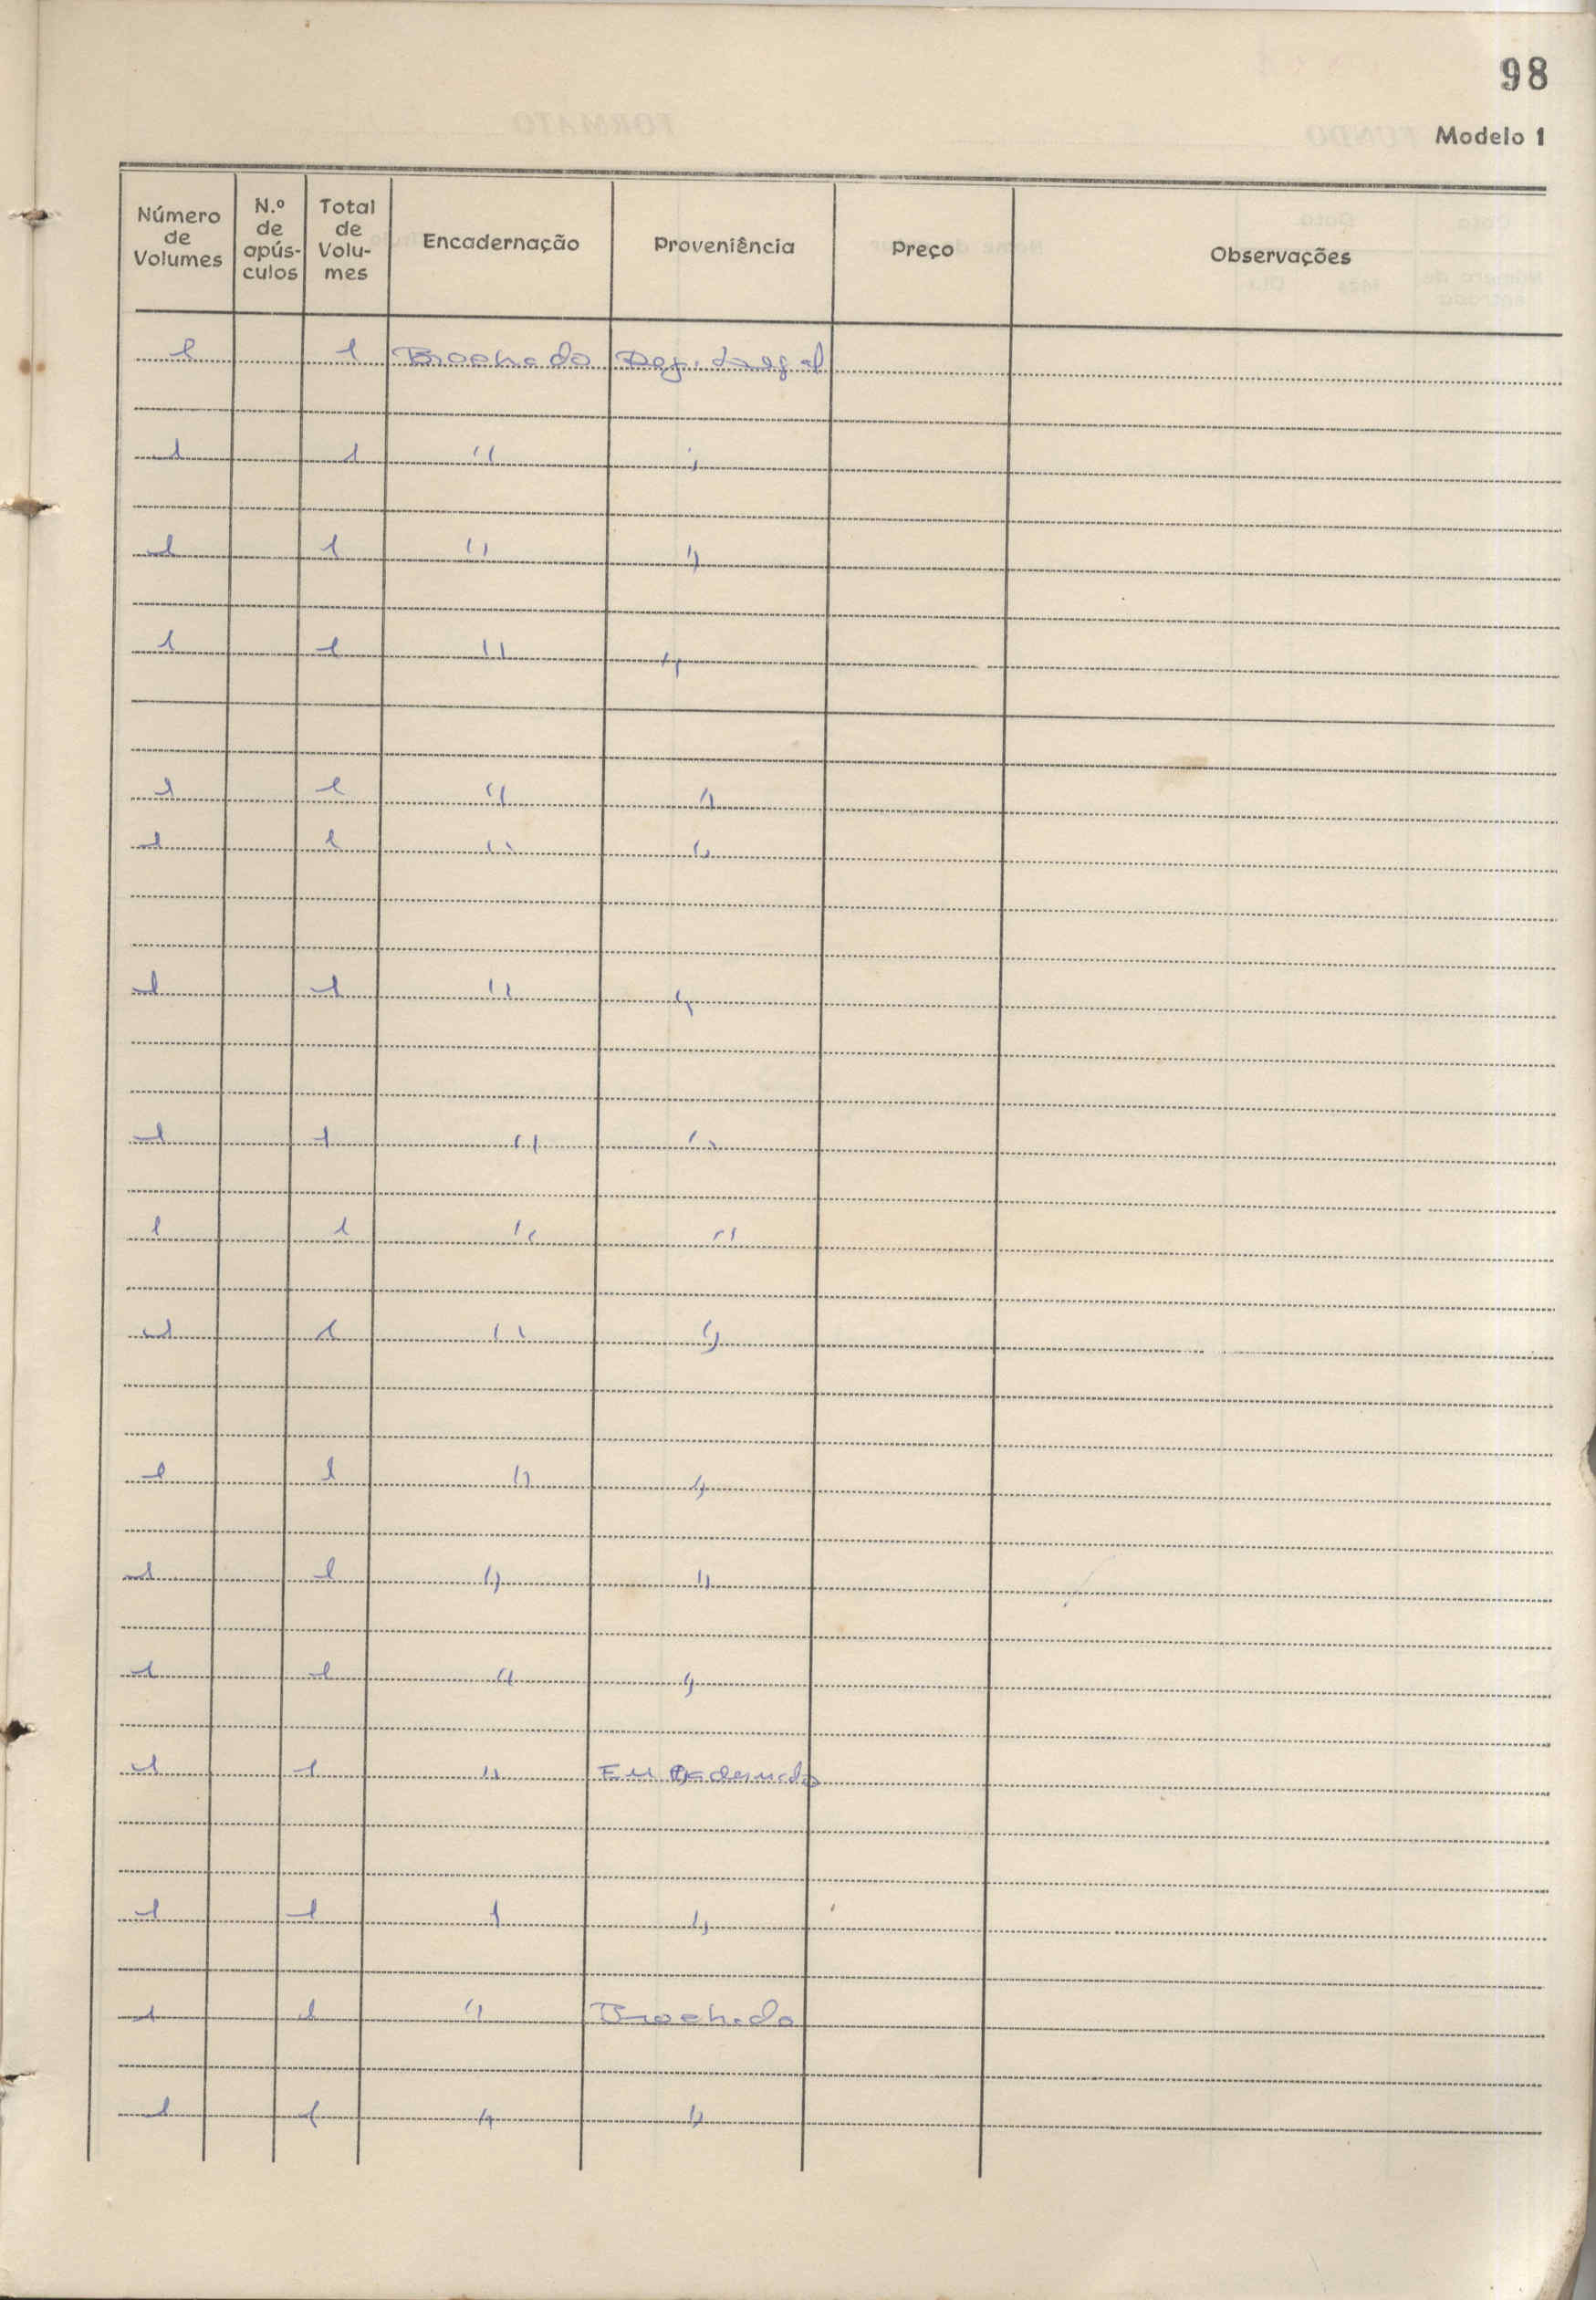 98
Modelo 1
Número de Volumes | N.º de apús-culos | Total de Volu-mes | Encadernação | Proveniência | Preço | Observações
1 1 Brochado Dep. Legal
1 1 " "
1 1 " "
1 1 " "
1 1 " "
1 1 " "
1 1 " "
1 1 " "
1 1 " "
1 1 " "
1 1 " "
1 1 " "
1 1 " "
1 1 "
1 1 " "
1 1 " Brochado
1 1 " "